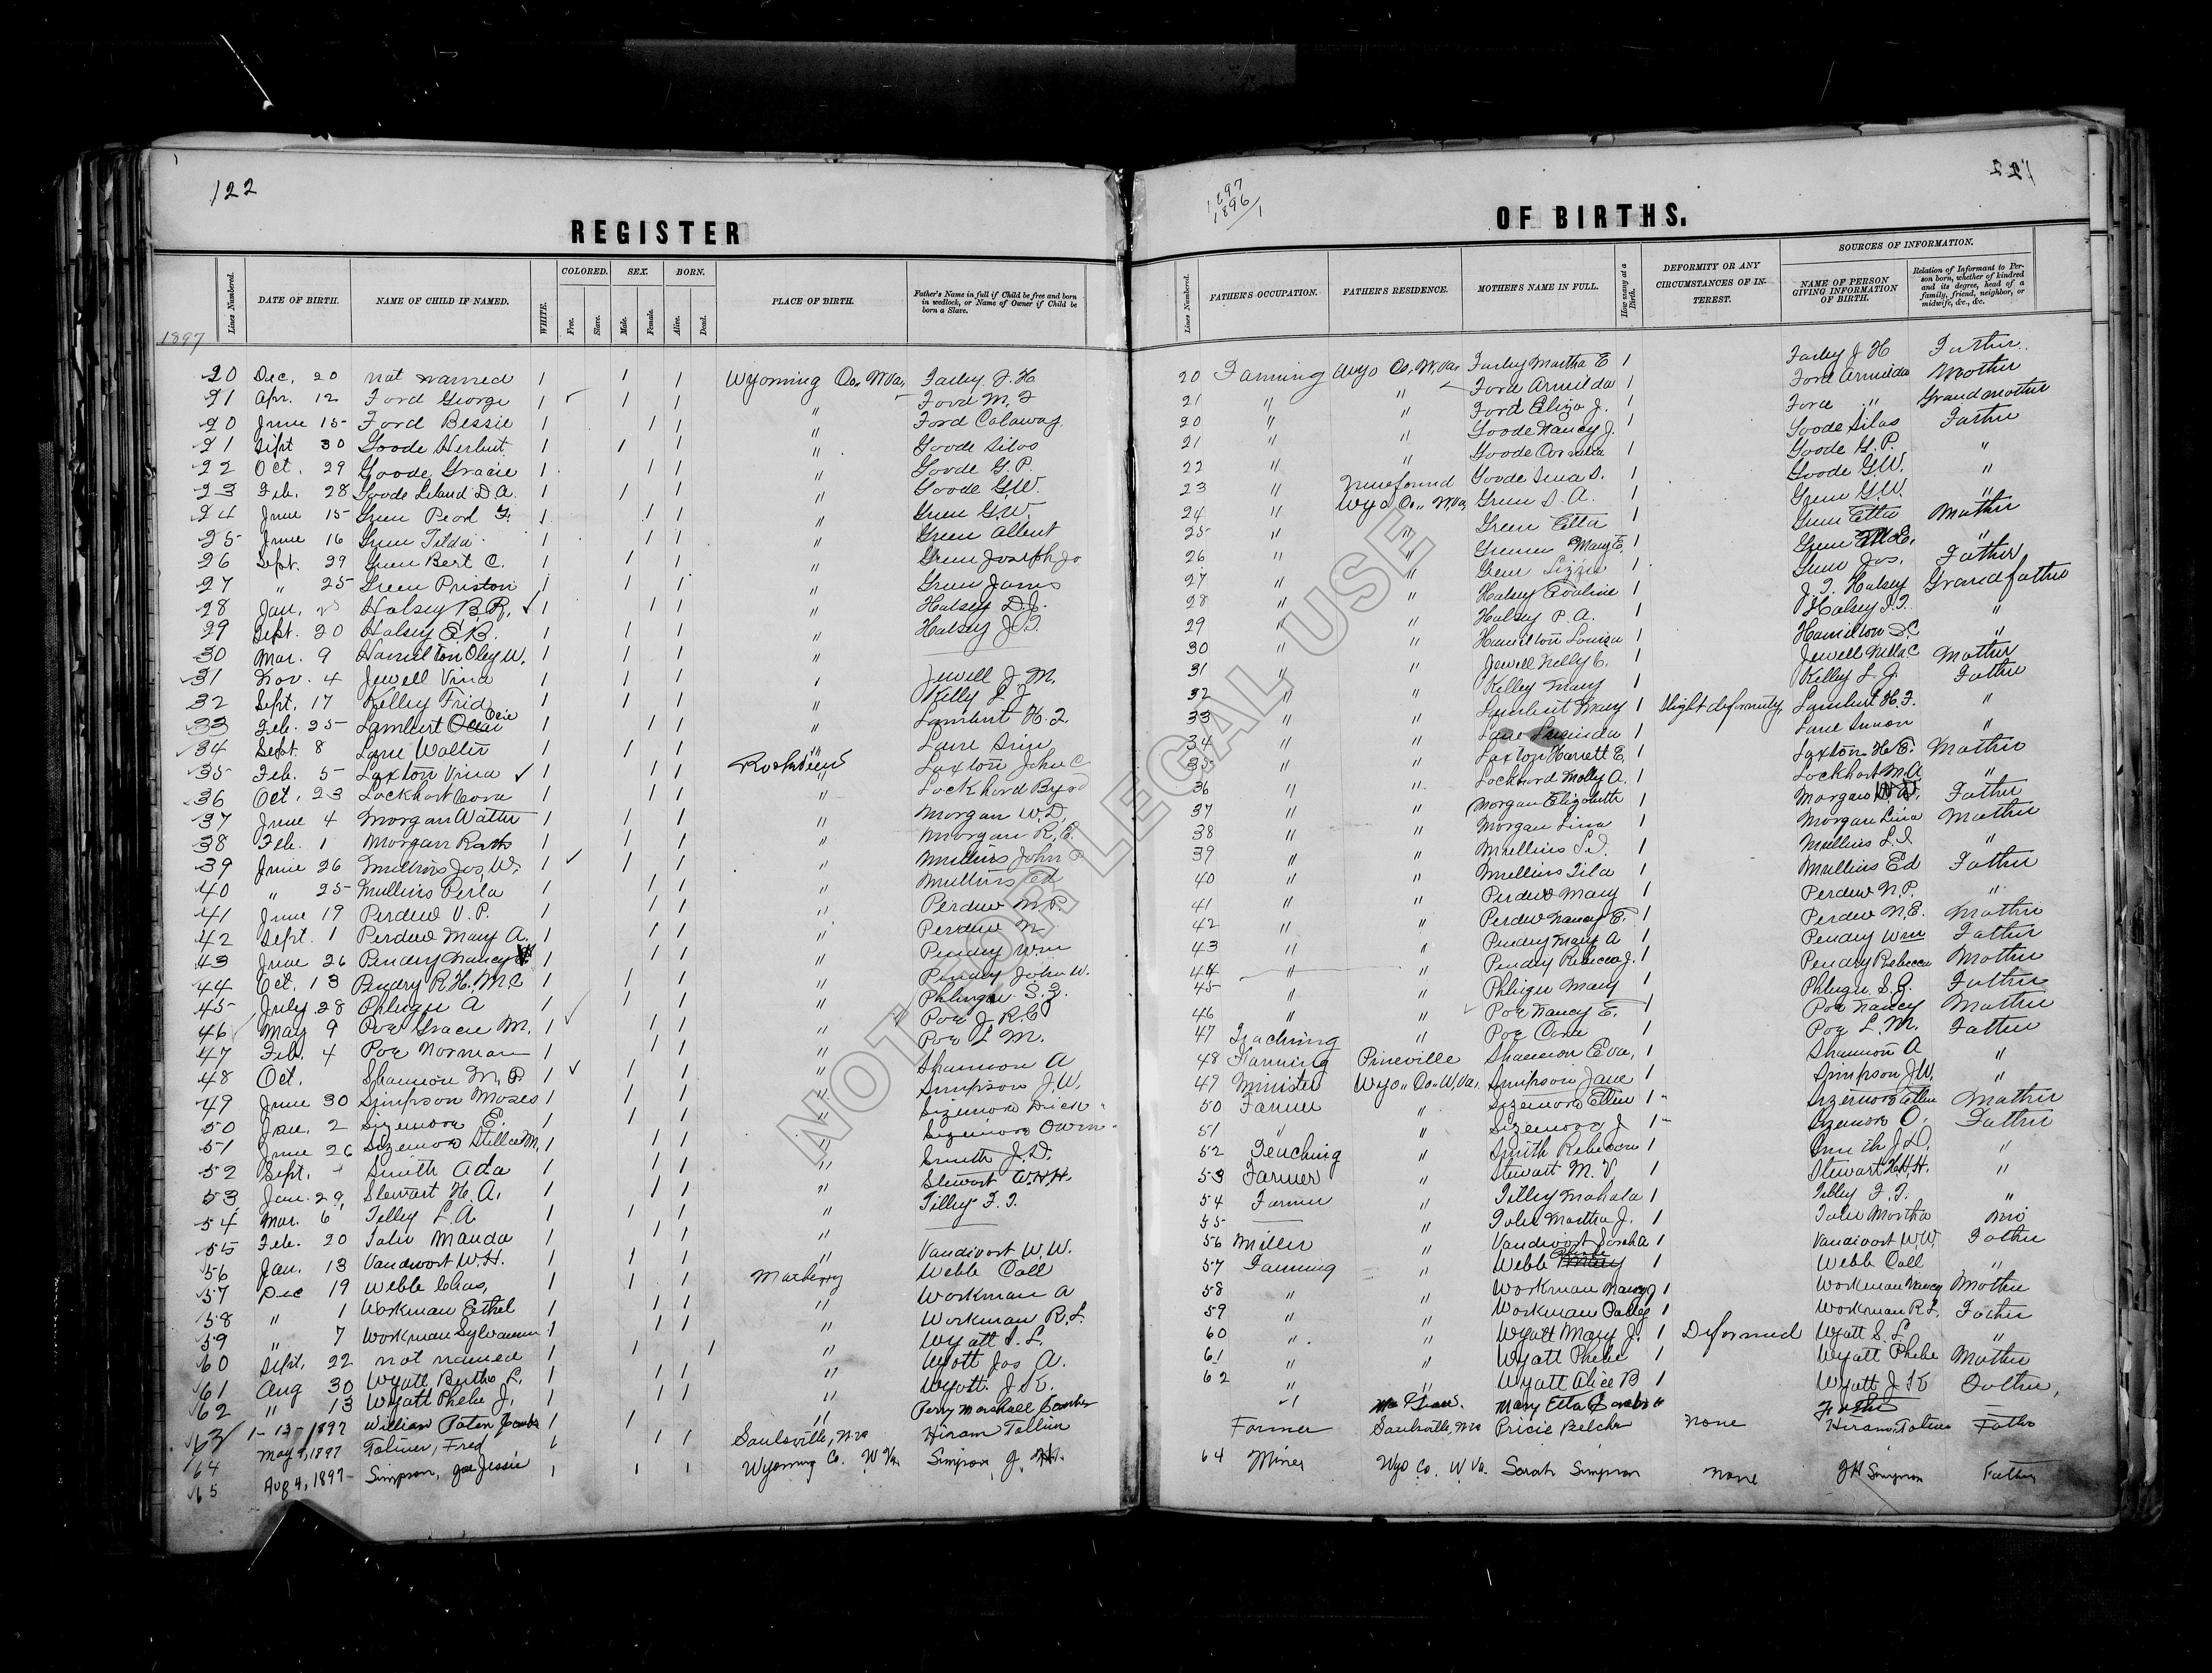 122
REGISTER
Lines Numbered. DATE OF BIRTH. NAME OF CHILD IF NAMED. WHITE. COLORED. Free. Slave. SEX. Male. Female. BORN. Alive. Dead. PLACE OF BIRTH. Father's Name in full if Child be free and born in wedlock, or Name of Owner if Child be born a Slave.
1897
20 Dec. 20 not named 1 1 1 Wyoming Co. W.Va. Farley J. H
21 Apr. 12 Ford George 1 1 1 " Ford M. F
20 June 15 Ford Bessie 1 1 1 " Ford Calaway
21 Sept 30 Goode Herbert 1 1 1 " Goode Silas
22 Oct. 29 Goode Gracie 1 1 1 " Goode G. P.
23 Feb. 28 Goode Leland D A. 1 1 1 " Goode G.W.
24 June 15 Green Pearl F. 1 1 1 " Green G.W.
25 June 16 Green Tilda 1 1 1 " Green Albert
26 Sept. 29 Green Bert C. 1 1 1 " Green Joseph Jo
27 " 25 Green Preston 1 1 1 " Green James
28 Jan. Halsey B. R. 1 1 1 " Halsey D. J.
29 Sept. 20 Halsey E B. 1 1 1 " Halsey J. T.
30 Mar. 9 Hamilton Oley W. 1 1 1 "
31 Nov. 4 Jewell Vina 1 1 1 " Jewell J. M.
32 Sept. 17 Kelley Fred 1 1 1 " Kelly L J
33 Feb. 25 Lambert Ocie 1 1 1 " Lambert H. F.
34 Sept. 8 Lane Walter 1 1 1 " Lane
35 Feb. 5 Laxton Vina 1 1 1 Rockview Laxton John C
36 Oct. 23 Lockhart Cora 1 1 1 " Lockhard Byrd
37 June 4 Morgan Walter 1 1 1 " Morgan W.D.
38 Feb. 1 Morgan 1 1 1 " Morgan R. E.
39 June 26 Mullins Jos. W. 1 1 1 " Mullins John
40 " 25 Mullins Perla 1 1 1 " Mullins Ed
41 June 19 Perdew V. P. 1 1 1 " Perdew N. P.
42 Sept. 1 Perdew Mary A. 1 1 1 " Perdew N
43 June 26 Pendry Nancy 1 1 1 " Pendry Wm
44 Oct. 13 Pendry R. H. M.C 1 1 1 " Pendry John W.
45 July 28 Phlegar A 1 1 1 " Phlegar S. G.
46 May 9 Poe Gracie M. 1 1 1 " Poe J. R. C
47 Feb. 4 Poe Norman 1 1 1 " Poe L M.
48 Oct. Shannon M. P. 1 1 1 " Shannon A
49 June 30 Simpson Moses 1 1 1 " Simpson J. W.
50 Jan. 2 Sizemore E. 1 1 1 " Sizemore Dick
51 June 26 Sizemore Stella M. 1 1 1 " Sizemore Owen
52 Sept. Smith Ada 1 1 1 " Smith J. D.
53 Jan. 29, Stewart H. A. 1 1 1 " Stewart W.H.H.
54 Mar. 6 Tilley L. A 1 1 1 " Tilley F. T.
55 Feb. 20 Toler Manda 1 1 1
56 Jan. 13 Vandivort W.H. 1 1 1 " Vandivort W. W.
57 Dec 19 Webb Chas. 1 1 1 Marberry Webb Call
58 " 1 Workman Ethel 1 1 1 " Workman A
59 " 7 Workman Sylvanus 1 1 1 " Workman R. L.
60 Sept. 22 not named 1 1 1 " Wyatt S. L.
61 Aug 30 Wyatt Bertha L. 1 1 1 " Wyatt Jos A.
62 " 13 Wyatt Phebe J. 1 1 1 " Wyatt J. K.
63 1-13-1897 William Paten Combs 1 1 " Perry Marshall Combs
64 May 9, 1897 Toliver, Fred 1 1 Saulsville, W Va Hiram Tolliver
65 Aug 4, 1897 Simpson, Joe Jessie 1 1 1 Wyoming Co. W Va. Simpson, J. H.
1897
1896/1
122
OF BIRTHS.
Lines Numbered. FATHER'S OCCUPATION. FATHER'S RESIDENCE. MOTHER'S NAME IN FULL. How many at a Birth. DEFORMITY OR ANY CIRCUMSTANCES OF INTEREST. SOURCES OF INFORMATION. NAME OF PERSON GIVING INFORMATION OF BIRTH. Relation of Informant to Person born, whether of kindred and its degree, head of a family, friend, neighbor, or midwife, &c., &c.
20 Farming Wyo Co. W.Va. Farley Martha E 1 Farley J H Father
21 " " Ford Armilda 1 Ford Armilda Mother
20 " " Ford Eliza J. 1 Ford " Grandmother
21 " " Goode Nancy J. 1 Goode Silas Father
22 " " Goode Cornelia 1 Goode G. P. "
23 " Goode Lena S. 1 Goode G.W. "
24 " Wyo Co. W.Va Green S. A. 1 Green G.W. "
25 " " Green Etta 1 Green Etta Mother
26 " " Green Mary E. 1 Green M E. "
27 " " Green Lizzie 1 Green Jos. Father
28 " " Halsey Evaline 1 J. T. Halsey Grandfather
29 " " Halsey P. A. 1 Halsey J. T. "
30 " " Hamilton Louiza 1 Hamilton S. C "
31 " " Jewell Nelly C. 1 Jewell Nella C Mother
32 " " Kelley Mary 1 Kelley L. J. Father
33 " " Lambert Mary 1 Slight deformity Lambert H. F. "
34 " " Lane 1 Lane "
35 " " Laxton Harrett E 1 Laxton H E. Mother
36 " " Lockhard Molly A. 1 Lockhart M. A "
37 " " Morgan Elizabeth 1 Morgan W. D. Father
38 " " Morgan Lina 1 Morgan Lina Mother
39 " " Mullins 1 Mullins "
40 " " Mullins Tila 1 Mullins Ed Father
41 " " Perdew Mary 1 Perdew N. P. "
42 " " Perdew Nancy E. 1 Perdew N. E. Mother
43 " " Pendry Mary A 1 Pendry Wm Father
44 " " Pendry Rebecca J. 1 Pendry Rebecca Mother
45 " " Phlegar Mary 1 Phlegar S. G. Father
46 " " Poe Nancy E. 1 Poe Nancy Mother
47 Teaching " Poe Cora 1 Poe L. M. Father
48 Farming Pineville Shannon Eva, 1 Shannon A "
49 Minister Wyo Co. W.Va. Simpson Jane 1 Simpson J.W. "
50 Farmer " Sizemore Ellen 1 Sizemore Ellen Mother
51 " " Sizemore J 1 Sizemore O. Father
52 Teaching " Smith Rebecca 1 Smith J. D. "
53 Farmer " Stewart M. V. 1 Stewart H.H. "
54 Farmer " Tilley Mahala 1 Tilley F. T. "
55 " Toler Martha J. 1 Toler Martha
56 Miller " Vandivort Sarah A 1 Vandivort W.W. Father
57 Farming " Webb 1 Webb Call "
58 " " Workman Nancy J 1 Workman Nancy Mother
59 " " Workman Polley 1 Workman R. L. Father
60 " " Wyatt Mary J. 1 Deformed Wyatt S. L. "
61 " " Wyatt Phebe 1 Wyatt Phebe Mother
62 " " Wyatt Alice B 1 Wyatt J K Father,
" Mc Graws. Mary Etta Combs " Father
Farmer Saulsville, W Va Pricie Belcher none Hiram Toliver Father
64 Miner Wyo Co. W Va. Sarah Simpson none J H Simpson Father
NOT FOR LEGAL USE